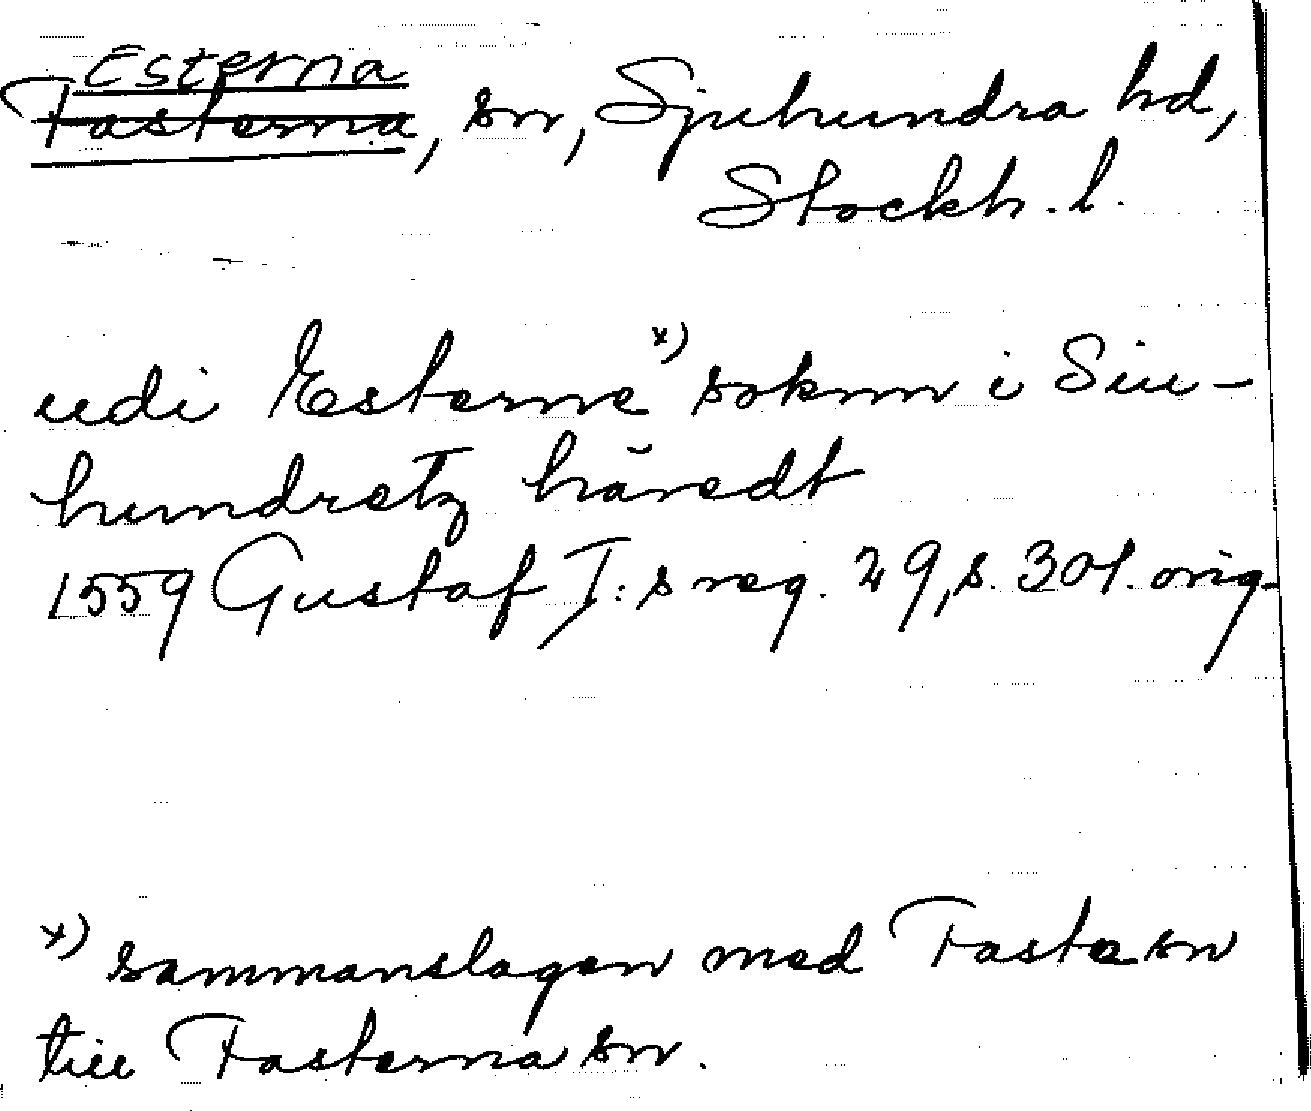 Esterna
Fasterna, sn, Sjuhundra hd,
Stockh. l.
udi Esterne x) soknn i Siu-
hundretz häredt
1559 Gustaf I:s reg. 29, s. 301. orig.
x) sammanslagen med Fasta sn
till Fasterna sn.